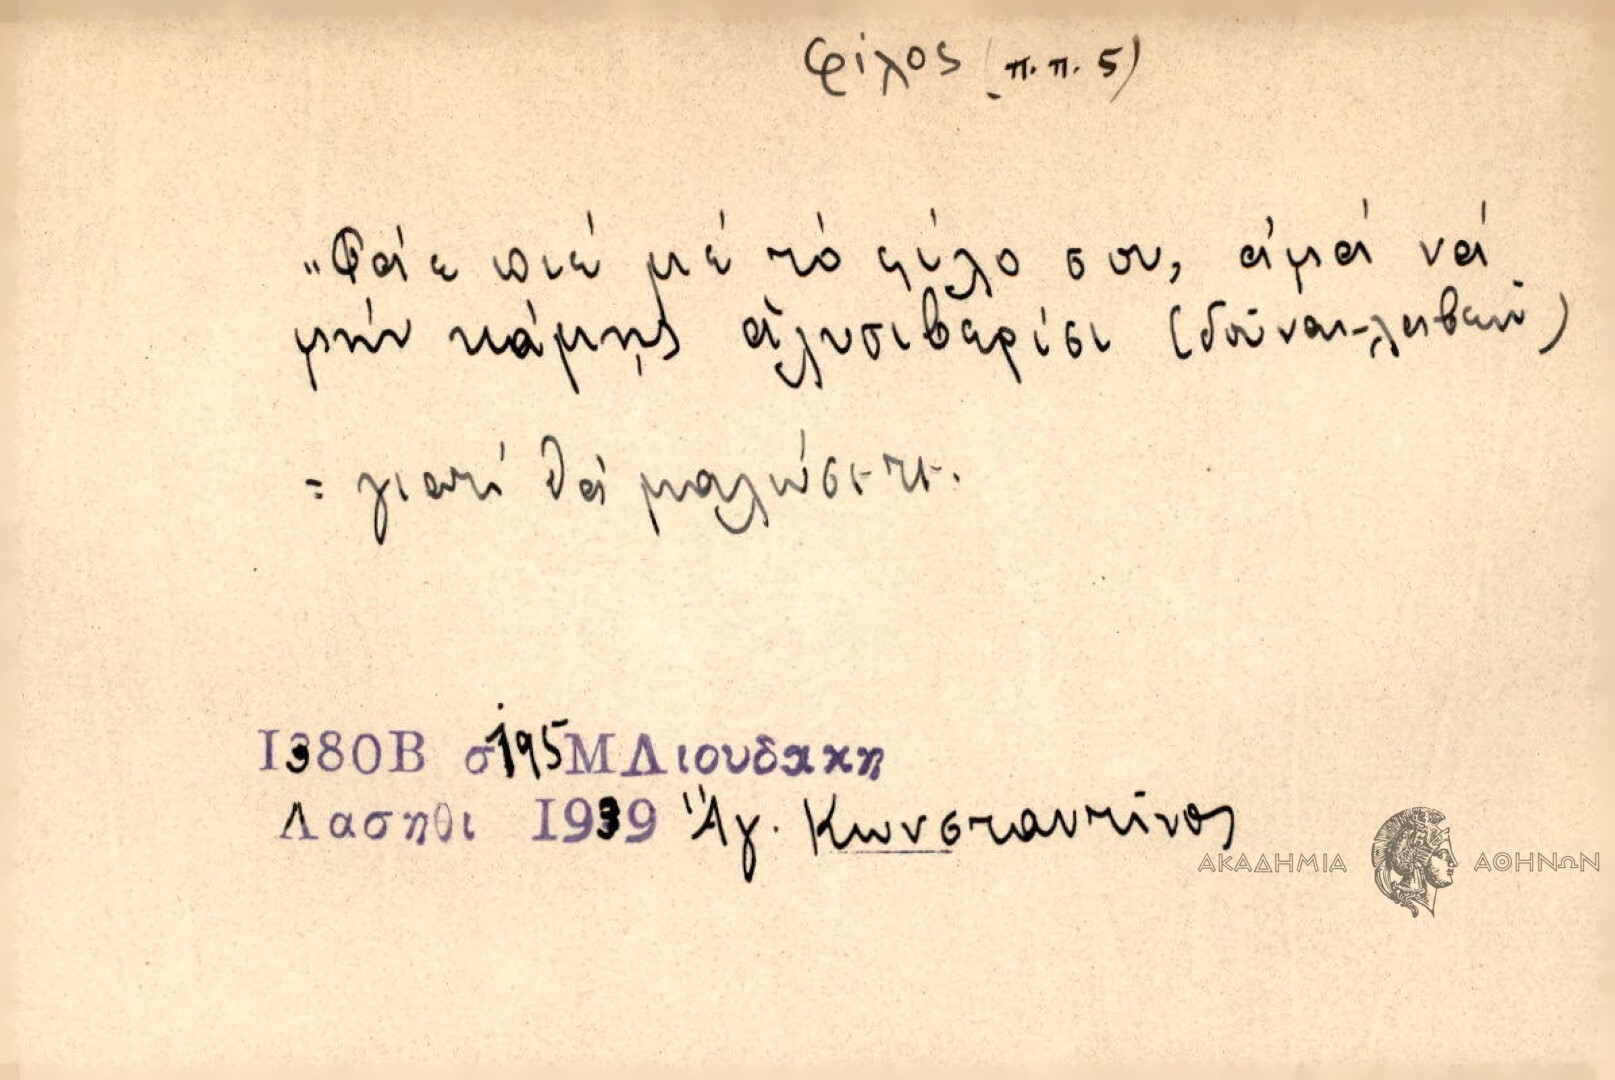 φίλος (π.π. 5)
"Φάε πιέ μέ τό φίλο σου, ἀμά νά
μήν κάμῃς ἀλυσιβερίσι (δοῦναι-λαβεῖν)
= γιατί θά μαλώσετε.
1380Β σ195 Μ Λιουδακη
Λασηθι 1939 Ἅγ. Κωνσταντῖνος
ΑΚΑΔΗΜΙΑ ΑΘΗΝΩΝ